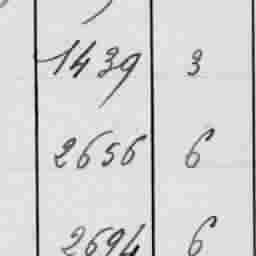 1439 3
2656 6
2694 6